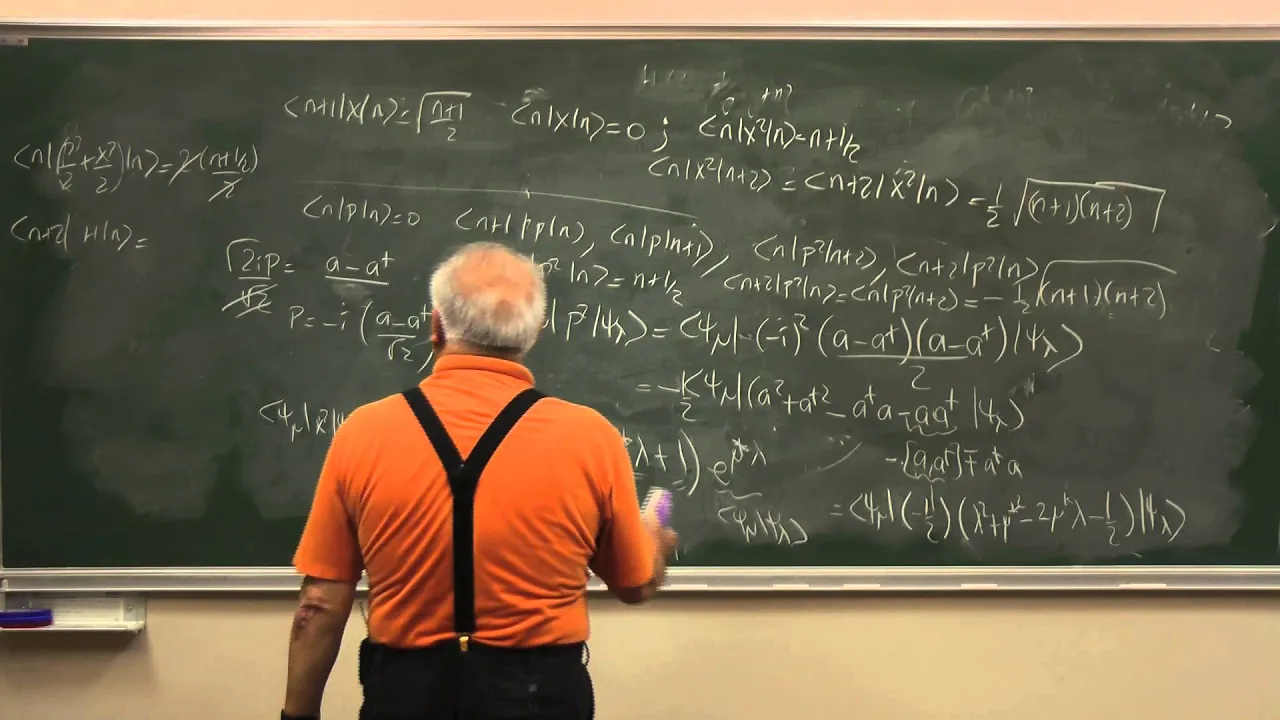 <n+1|x|n>=√(n+1)/2 <n|x|n>=0 ; <n|x²|n>=n+1/2
<n|x²|n+2> = <n+2|x²|n> = 1/2 √(n+1)(n+2)
<n|(p²/2+x²/2)|n>=2(n+1/2)/2
<n|p|n>=0 <n+1|p|n>, <n|p|n+1>, <n|p²|n+2>, <n+2|p²|n>
<n+2|H|n>=
√2ip/√2 = a-a†
p²|n>=n+1/2 <n+2|p²|n>=<n|p²|n+2>=-1/2 √(n+1)(n+2)
p=-i (a-a†/√2) |p²|ψλ>=<ψμ|-(-i)²(a-a†)(a-a†)/2|ψλ>
=-1/2<ψμ|(a²+a†²-a†a-aa†|ψλ>
<ψμ|x²|ψ *λ+1) e^μ*λ
-[a,a†]∓a†a
<ψμ|ψλ> =<ψμ|(-1/2)(λ²+μ*²-2μ*λ-1/2)|ψλ>